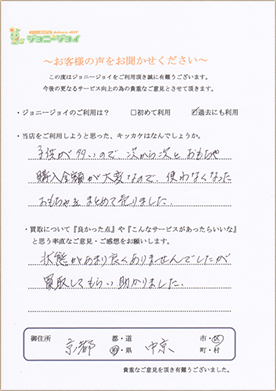 ジョニージョイ
～お客様の声をお聞かせください～
この度はジョニージョイをご利用頂き誠に有難うございます。
今後の更なるサービス向上の為の貴重なご意見とさせて頂きます。
・ジョニージョイのご利用は？ □初めて利用 ☑過去にも利用
・当店をご利用しようと思った、キッカケはなんでしょうか。
子供が多いので、次から次と おもちゃ
購入金額が大変なので、使わなくなった
おもちゃを まとめて売りました。
・買取について『良かった点』や『こんなサービスがあったらいいな』
と思う率直なご意見・ご感想をお願いします。
状態があまり良くありませんでしたが
買取してもらい助かりました。
御住所 京都 都・道 府・県 中京 市・区 町・村
貴重なご意見を頂き有難うございました。